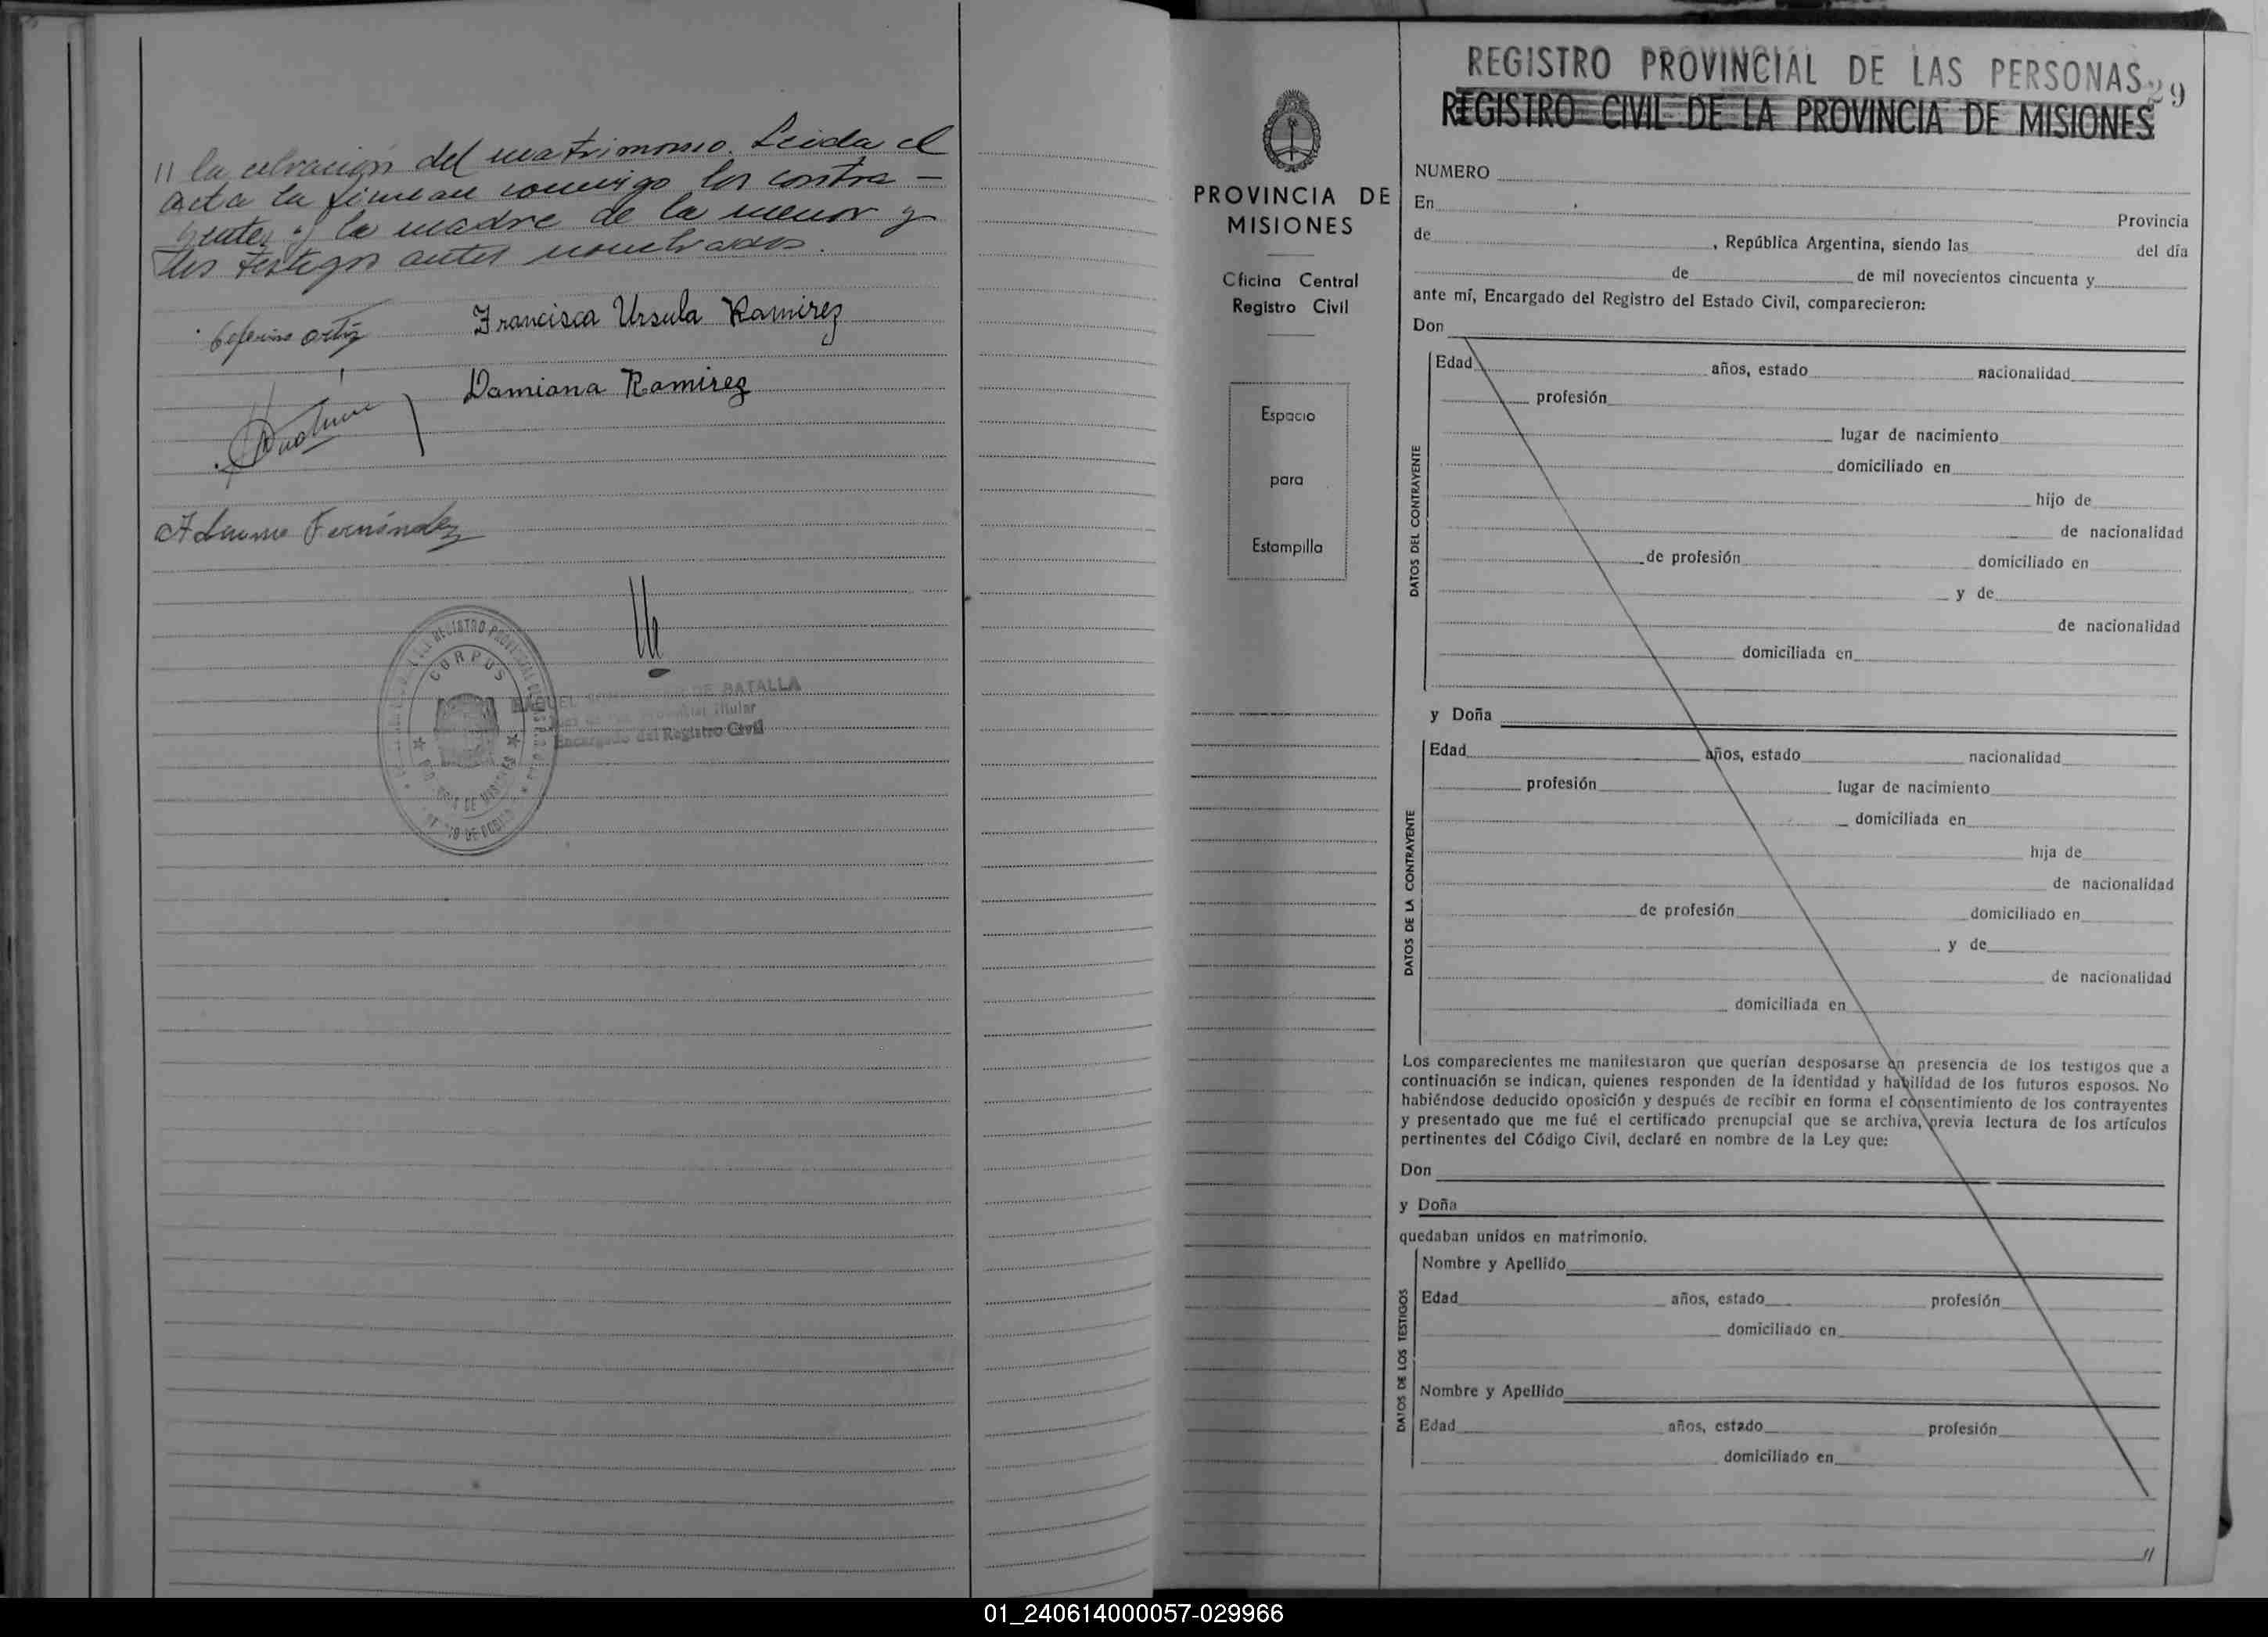 // la celebración del matrimonio. Leida el
acta la firman conmigo los contra-
yentes, la madre de la menor y
los testigos antes nombrados.
Ceferino Ortiz
Francisca Ursula Ramirez
Damiana Ramirez
Fernández
REGISTRO PROVINCIAL
CORPUS
DE BATALLA
Titular
Encargado del Registro Civil
PROVINCIA DE
MISIONES
Oficina Central
Registro Civil
Espacio
para
Estampilla
REGISTRO PROVINCIAL DE LAS PERSONAS
29
REGISTRO CIVIL DE LA PROVINCIA DE MISIONES
NUMERO
En
Provincia
de , República Argentina, siendo las del día
de de mil novecientos cincuenta y
ante mí, Encargado del Registro del Estado Civil, comparecieron:
Don
DATOS DEL CONTRAYENTE
Edad años, estado nacionalidad
profesión
lugar de nacimiento
domiciliado en
hijo de
de nacionalidad
de profesión domiciliado en
y de
de nacionalidad
domiciliada en
y Doña
DATOS DE LA CONTRAYENTE
Edad años, estado nacionalidad
profesión lugar de nacimiento
domiciliada en
hija de
de nacionalidad
de profesión domiciliado en
y de
de nacionalidad
domiciliada en
Los comparecientes me manifestaron que querían desposarse en presencia de los testigos que a
continuación se indican, quienes responden de la identidad y habilidad de los futuros esposos. No
habiéndose deducido oposición y después de recibir en forma el consentimiento de los contrayentes
y presentado que me fué el certificado prenupcial que se archiva, previa lectura de los artículos
pertinentes del Código Civil, declaré en nombre de la Ley que:
Don
y Doña
quedaban unidos en matrimonio.
DATOS DE LOS TESTIGOS
Nombre y Apellido
Edad años, estado profesión
domiciliado en
Nombre y Apellido
Edad años, estado profesión
domiciliado en
//
01_240614000057-029966